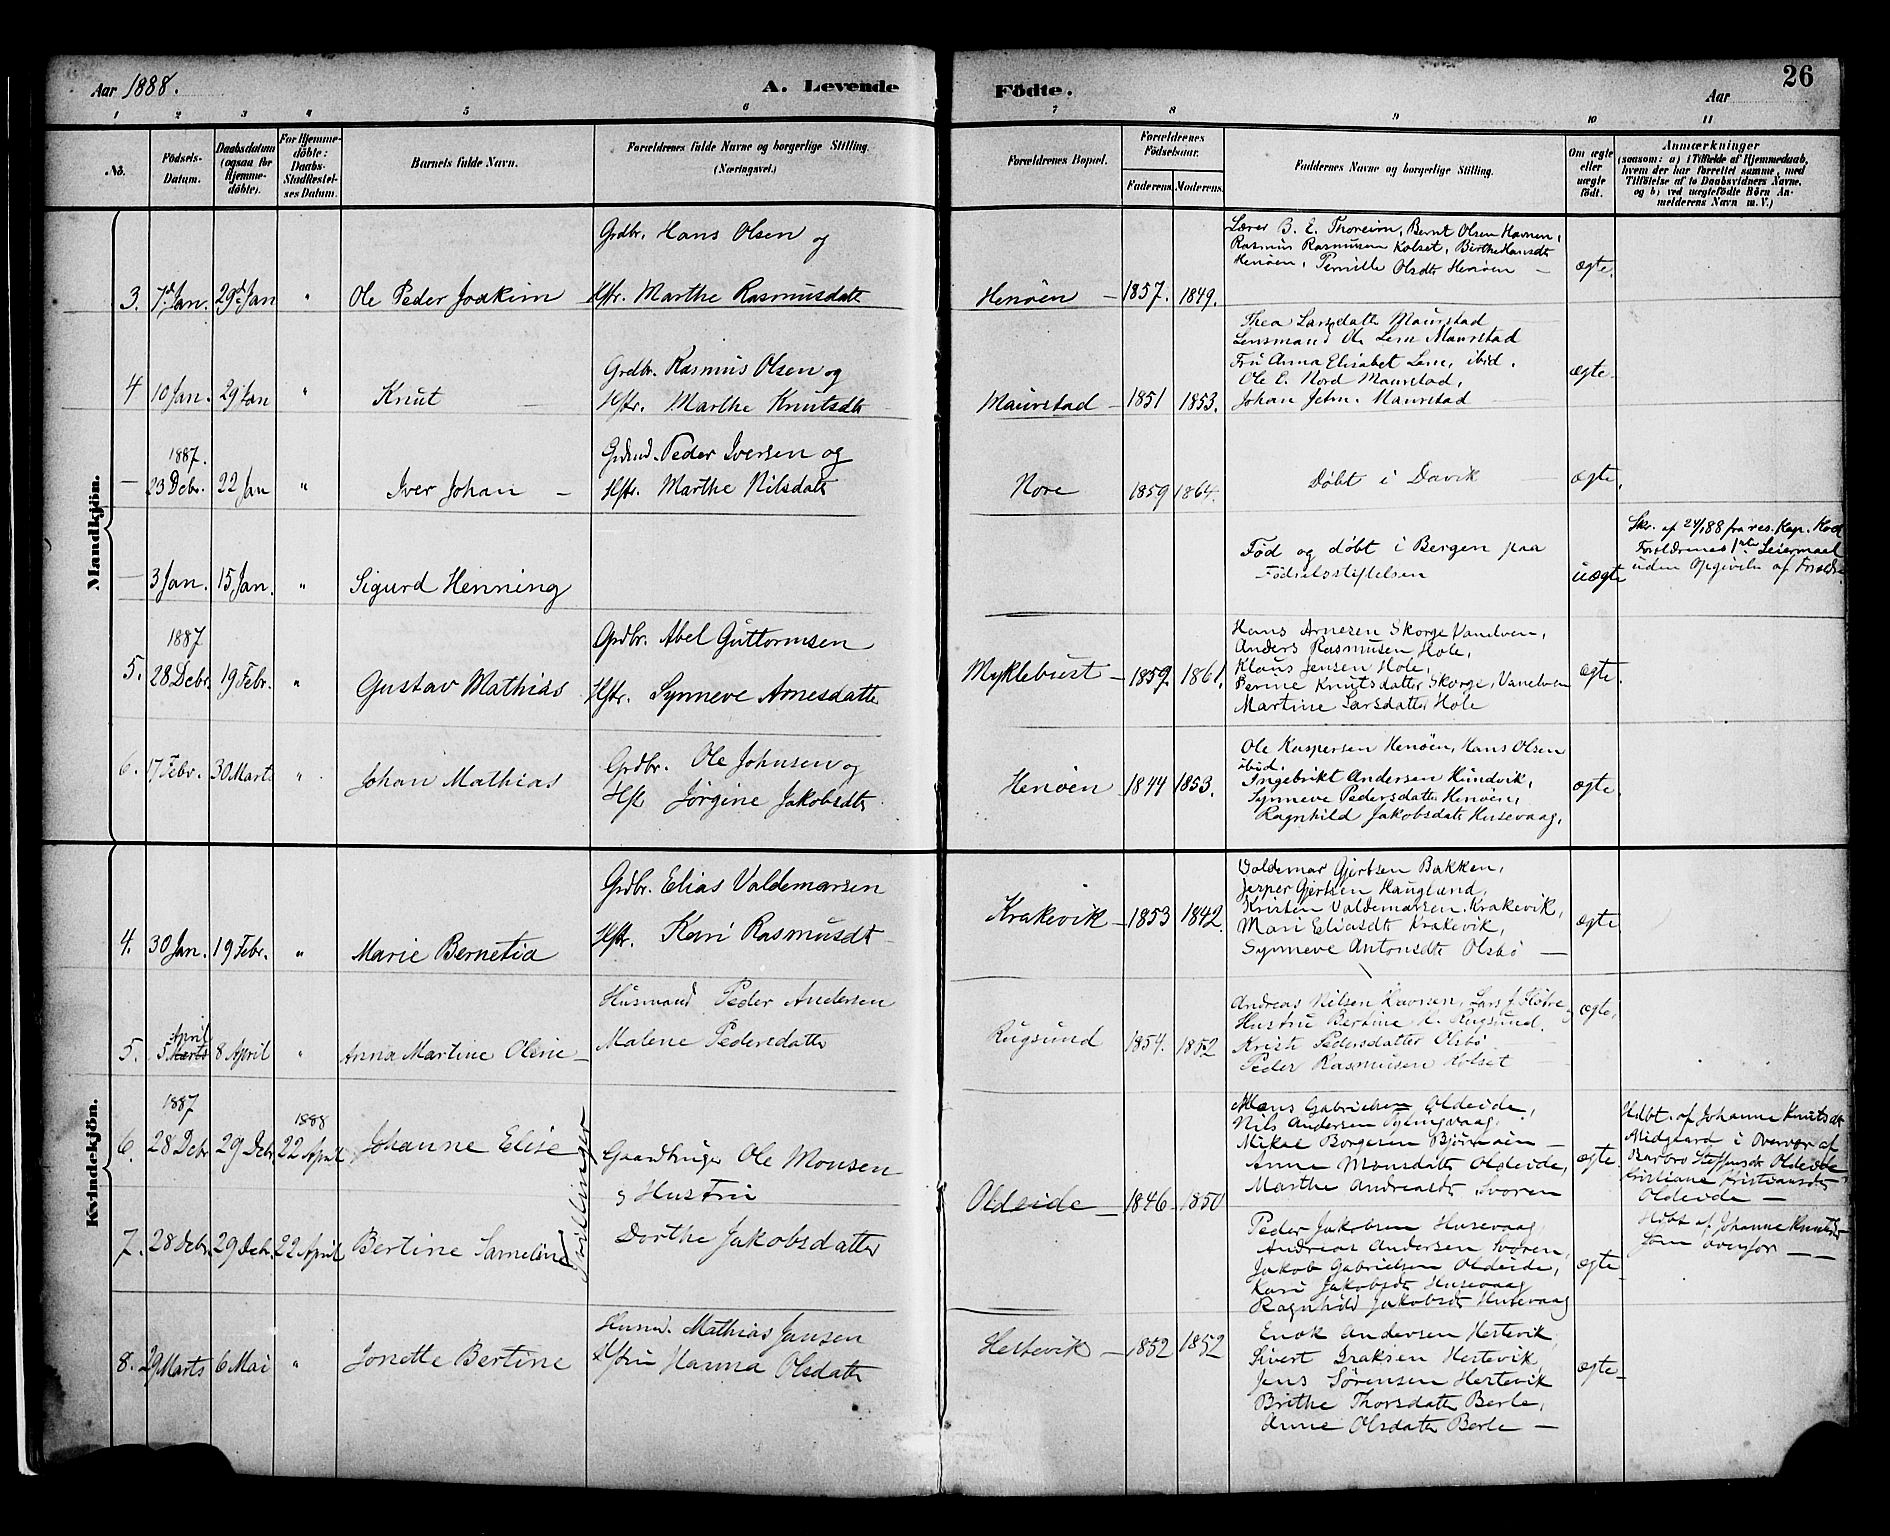 Aar 1888.
A. Levende
Födte.
Aar
26
1 2 3 4 5 6 7 8 9 10 11
No.
Födsels-Datum.
Daabsdatum (ogsaa for Hjemme-döbte).
For Hjemme-döbte: Daabs-Stadfæstel-ses Datum.
Barnets fulde Navn.
Forældrenes fulde Navne og borgerlige Stilling. (Næringsvei.)
Forældrenes Bopæl.
Forældrenes Födselsaar.
Faderens. Moderens.
Faddernes Navne og borgerlige Stilling.
Om ægte eller uægte födt.
Anmærkninger
(saasom: a) i Tilfælde af Hjemmedaab,
hvem der har forrettet samme, med
Tilföielse af to Daabsvidners Navne,
og b) ved uægtefödte Börn An-
melderens Navn m. V.)
Mandkjön.
3. 7de Jan. 29de Jan " Ole Peder Joakim
Grdbr. Hans Olsen og
Hstr. Marthe Rasmusdatt
Henöen – 1857. 1849.
Lærer B. E. Thoreim, Bernt Olsen Havnen,
Rasmus Rasmusen Kolset, Birthe Hansdtr
Henöen, Pernille Olsdtr Henöen –
ægte.
4 10 Jan. 29 Jan " Knut
Grdbr. Rasmus Olsen og
Hstr. Marthe Knutsdtr
Maurstad – 1851 1853.
Thea Larsdatter Maurstad
Lensmand Ole Lem Maurstad
Fru Anna Elisabet Lem, ibid.
Ole E. Nord Maurstad,
Johan Jetm. Maurstad
ægte.
1887.
– 23 Debr. 22 Jan " Iver Johan –
Peder Iversen og
Hstr. Marthe Nilsdatt
Nore 1859 1864.
Döbt i Davik
ægte.
– 3 Jan. 15 Jan. " Sigurd Henning
Föd og döbt i Bergen paa
Födselsstiftelsen
uægte
Skr. af 24/1 88 fra res. Kap.
Forældrenes 1ste Leiermaal
uden Opgivelse af
1887
5. 28 Debr. 19 Febr. " Gustav Mathias
Grdbr. Abel Guttormsen
Hstr. Synneve Arnesdatter
Myklebust – 1859 1861.
Hans Arnesen Skorge Vanelven,
Anders Rasmusen Hole,
Klaus Jensen Hole,
Perine Knutsdatter Skorge, Vanelven
Martine Larsdatter Hole
ægte.
6. 17 Febr. 30 Marts " Johan Mathias
Grdbr. Ole Johnsen og
Hst Jörgine Jakobsdtr
Henöen 1844 1853.
Ole Kaspersen Henöen, Hans Olsen
ibid.
Ingebrikt Andersen Hundvik,
Synneve Pedersdatter Henöen,
Ragnhild Jakobsdatt Husevaag,
ægte.
Kvindekjön.
4. 30 Jan. 19 Febr. " Marie Bernetia
Grdbr. Elias Valdemarsen
Hstr. Kari Rasmusdtr
Krakevik – 1853 1842.
Valdemar Gjertsen Bakken,
Jesper Gjertsen Haugland,
Kristen Valdemarsen Krakevik,
Mari Eliasdtr Krakevik,
Synneve Antonsdtr Olsbö –
ægte
5. 5 Marts April 8 April " Anna Martine Oline –
Husmand Peder Andersen
Malene Pedersdatter
Rugsund 1854. 1852
Andreas Nilsen
Hustru Bertine Rugsund.
Kristi Pedersdatter Olsbö
Peder Rasmusen Kolset
ægte.
1887 1888
6. 28 Debr 29 Debr 22 April Johanne Elise
Tvillinger
Gaardbruger Ole Monsen
og Hustru
Dorthe Jakobsdatter
Oldeide – 1846 – 1850
Mons Gabrielsen Oldeide,
Nils Andersen
Mikal Borgesen
Anne Monsdatter Oldeide,
Marthe Andreasdtr Svoren
ægte
Hdbt. af Johanne Knutsdtr
Midgaard i Overvær af
Barbro Steffensdtr Oldeide
Kristiane Kristiansdtr
Oldeide –
7. 28 Debr. 29 Debr. 22 April Bertine Sameline
Peder Jakobsen Husevaag
Andreas Andersen Svoren,
Jakob Gabrielsen Oldeide,
Kari Jakobsdtr Husevaag
Ragnhild Jakobsdtr Husevaag
ægte
Hdbt af Johanne Knutsdtr
som ovenfor – –
8. 29 Marts 6 Mai " Jonette Bertine
Husmd. Mathias Jansen
Hstru Hanna Olsdatter
Hestevik – 1852 1852
Enok Andersen Hestevik,
Sivert Isaksen Hestevik,
Jens Sörensen Hestevik
Brithe Thorsdatter Berle,
Anne Olsdatter Berle –
ægte –